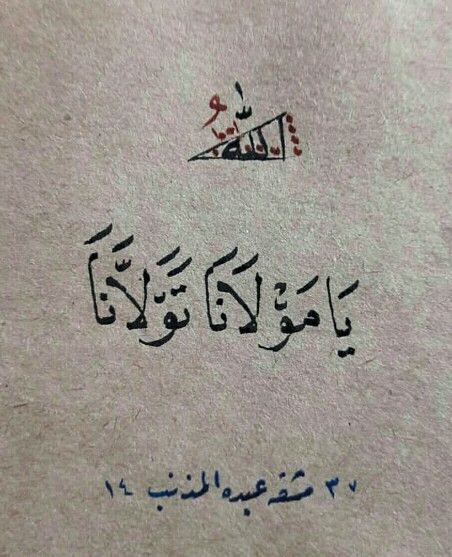 الله
يَا مَوْلَانَا تَوَلَّانَا
٣٧ مشقه عبده المذنب ١٤